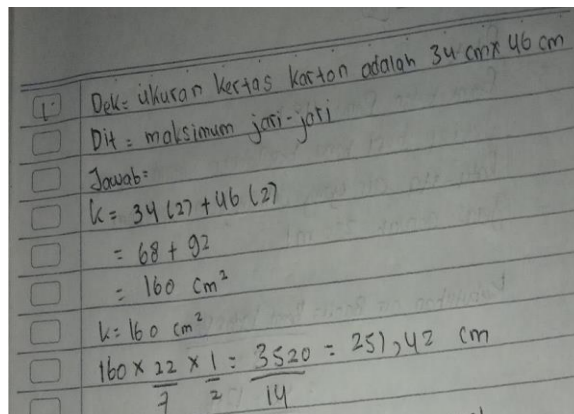 1. Dek = ukuran kertas karton adalah 34 cm x 46 cm
Dit = maksimum jari-jari
Jawab=
K = 34 (2) + 46 (2)
= 68 + 92
= 160 cm²
K = 160 cm²
160 x 22/7 x 1/2 = 3520/14 = 251,42 cm